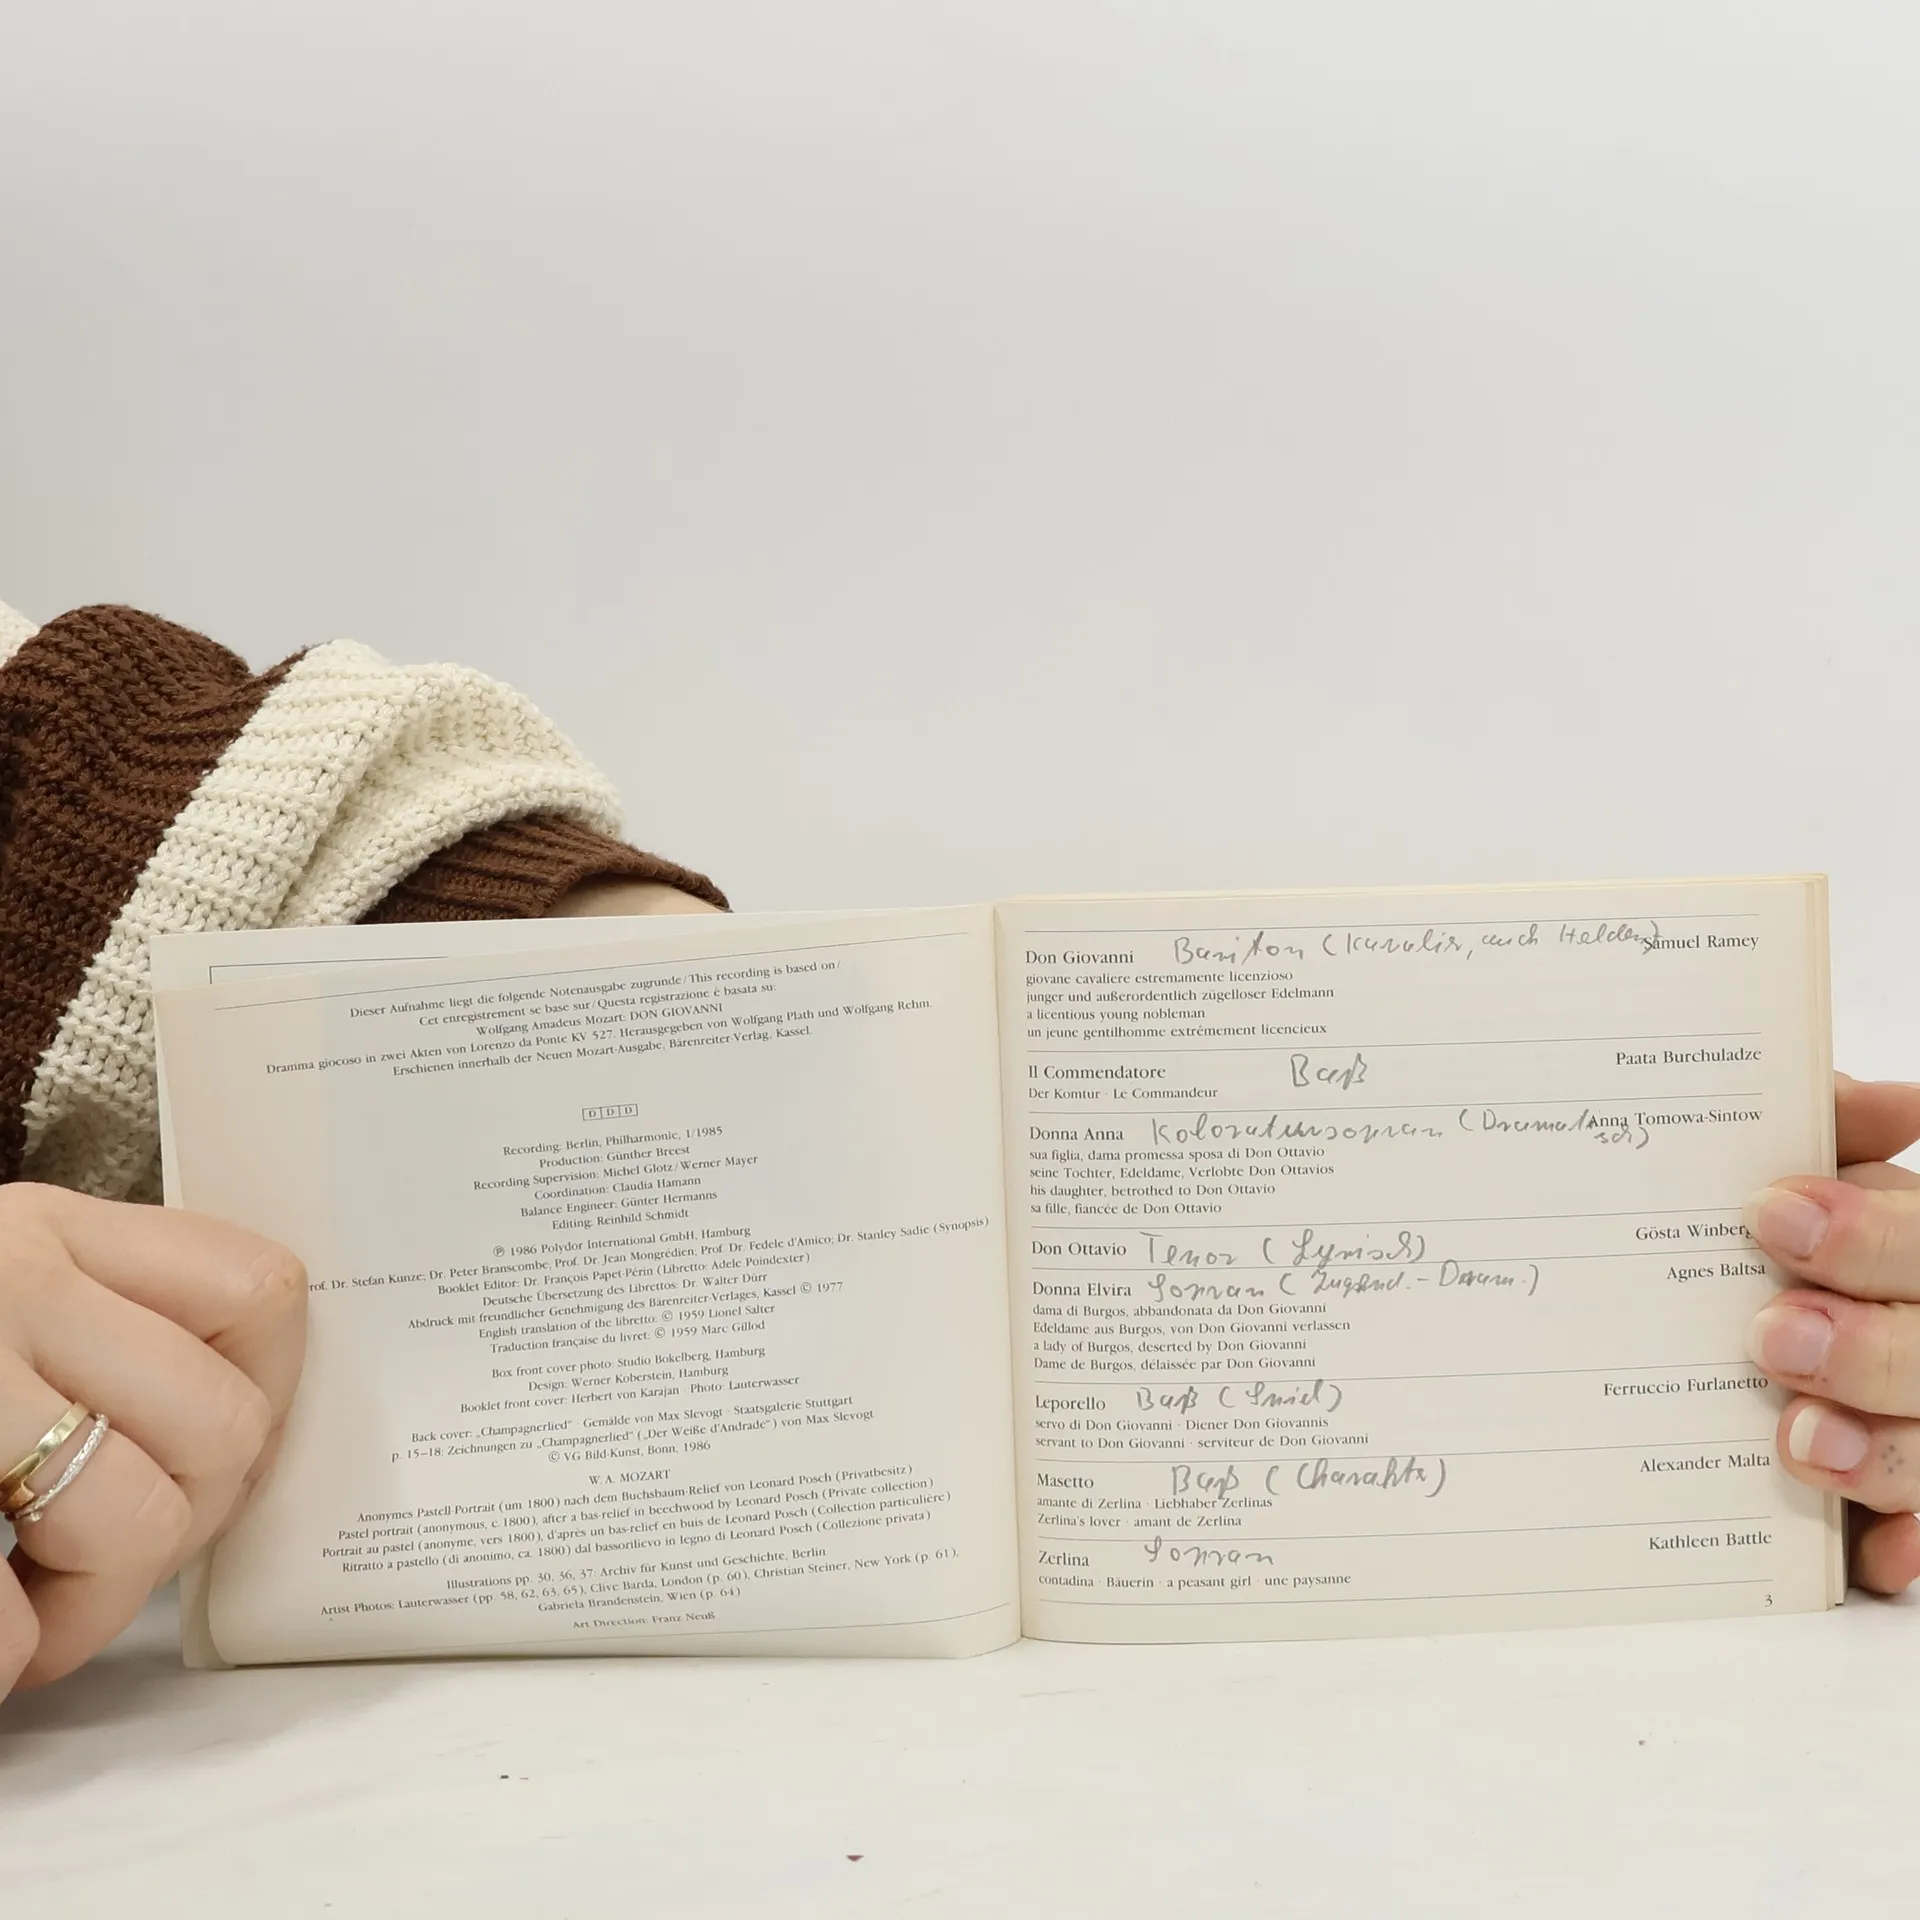 Dieser Aufnahme liegt die folgende Notenausgabe zugrunde/This recording is based on/
Cet enregistrement se base sur/Questa registrazione è basata su:
Wolfgang Amadeus Mozart: DON GIOVANNI
Dramma giocoso in zwei Akten von Lorenzo da Ponte KV 527. Herausgegeben von Wolfgang Plath und Wolfgang Rehm.
Erschienen innerhalb der Neuen Mozart-Ausgabe, Bärenreiter-Verlag, Kassel.
DDD
Recording: Berlin, Philharmonie, 1/1985
Production: Günther Breest
Recording Supervision: Michel Glotz/Werner Mayer
Coordination: Claudia Hamann
Balance Engineer: Günter Hermanns
Editing: Reinhild Schmidt
℗ 1986 Polydor International GmbH, Hamburg
rof. Dr. Stefan Kunze; Dr. Peter Branscombe, Prof. Dr. Jean Mongrédien; Prof. Dr. Fedele d'Amico; Dr. Stanley Sadie (Synopsis)
Booklet Editor: Dr. François Papet-Périn (Libretto: Adele Poindexter)
Deutsche Übersetzung des Librettos: Dr. Walter Dürr
Abdruck mit freundlicher Genehmigung des Bärenreiter-Verlages, Kassel © 1977
English translation of the libretto: © 1959 Lionel Salter
Traduction française du livret: © 1959 Marc Gillod
Box front cover photo: Studio Bokelberg, Hamburg
Design: Werner Koberstein, Hamburg
Booklet front cover: Herbert von Karajan · Photo: Lauterwasser
Back cover: „Champagnerlied“ · Gemälde von Max Slevogt · Staatsgalerie Stuttgart
p. 15–18: Zeichnungen zu „Champagnerlied“ („Der Weiße d'Andrade“) von Max Slevogt
© VG Bild-Kunst, Bonn, 1986
W. A. MOZART
Anonymes Pastell-Portrait (um 1800) nach dem Buchsbaum-Relief von Leonard Posch (Privatbesitz)
Pastel portrait (anonymous, c. 1800), after a bas-relief in beechwood by Leonard Posch (Private collection)
Portrait au pastel (anonyme, vers 1800), d'après un bas-relief en buis de Leonard Posch (Collection particulière)
Ritratto a pastello (di anonimo, ca. 1800) dal bassorilievo in legno di Leonard Posch (Collezione privata)
Illustrations pp. 30, 36, 37: Archiv für Kunst und Geschichte, Berlin
Artist Photos: Lauterwasser (pp. 58, 62, 63, 65), Clive Barda, London (p. 60), Christian Steiner, New York (p. 61),
Gabriela Brandenstein, Wien (p. 64)
Art Direction: Franz Neuß
Don Giovanni Bariton (Kavalier, auch Helden) Samuel Ramey
giovane cavaliere estremamente licenzioso
junger und außerordentlich zügelloser Edelmann
a licentious young nobleman
un jeune gentilhomme extrêmement licencieux
Il Commendatore Baß Paata Burchuladze
Der Komtur · Le Commandeur
Donna Anna Koloratursopran (Dramatisch) Anna Tomowa-Sintow
sua figlia, dama promessa sposa di Don Ottavio
seine Tochter, Edeldame, Verlobte Don Ottavios
his daughter, betrothed to Don Ottavio
sa fille, fiancée de Don Ottavio
Don Ottavio Tenor (Lyrisch) Gösta Winberg
Donna Elvira Sopran (Jugend.-Dram.) Agnes Baltsa
dama di Burgos, abbandonata da Don Giovanni
Edeldame aus Burgos, von Don Giovanni verlassen
a lady of Burgos, deserted by Don Giovanni
Dame de Burgos, délaissée par Don Giovanni
Leporello Baß (Spiel) Ferruccio Furlanetto
servo di Don Giovanni · Diener Don Giovannis
servant to Don Giovanni · serviteur de Don Giovanni
Masetto Baß (Charakter) Alexander Malta
amante di Zerlina · Liebhaber Zerlinas
Zerlina's lover · amant de Zerlina
Zerlina Sopran Kathleen Battle
contadina · Bäuerin · a peasant girl · une paysanne
3